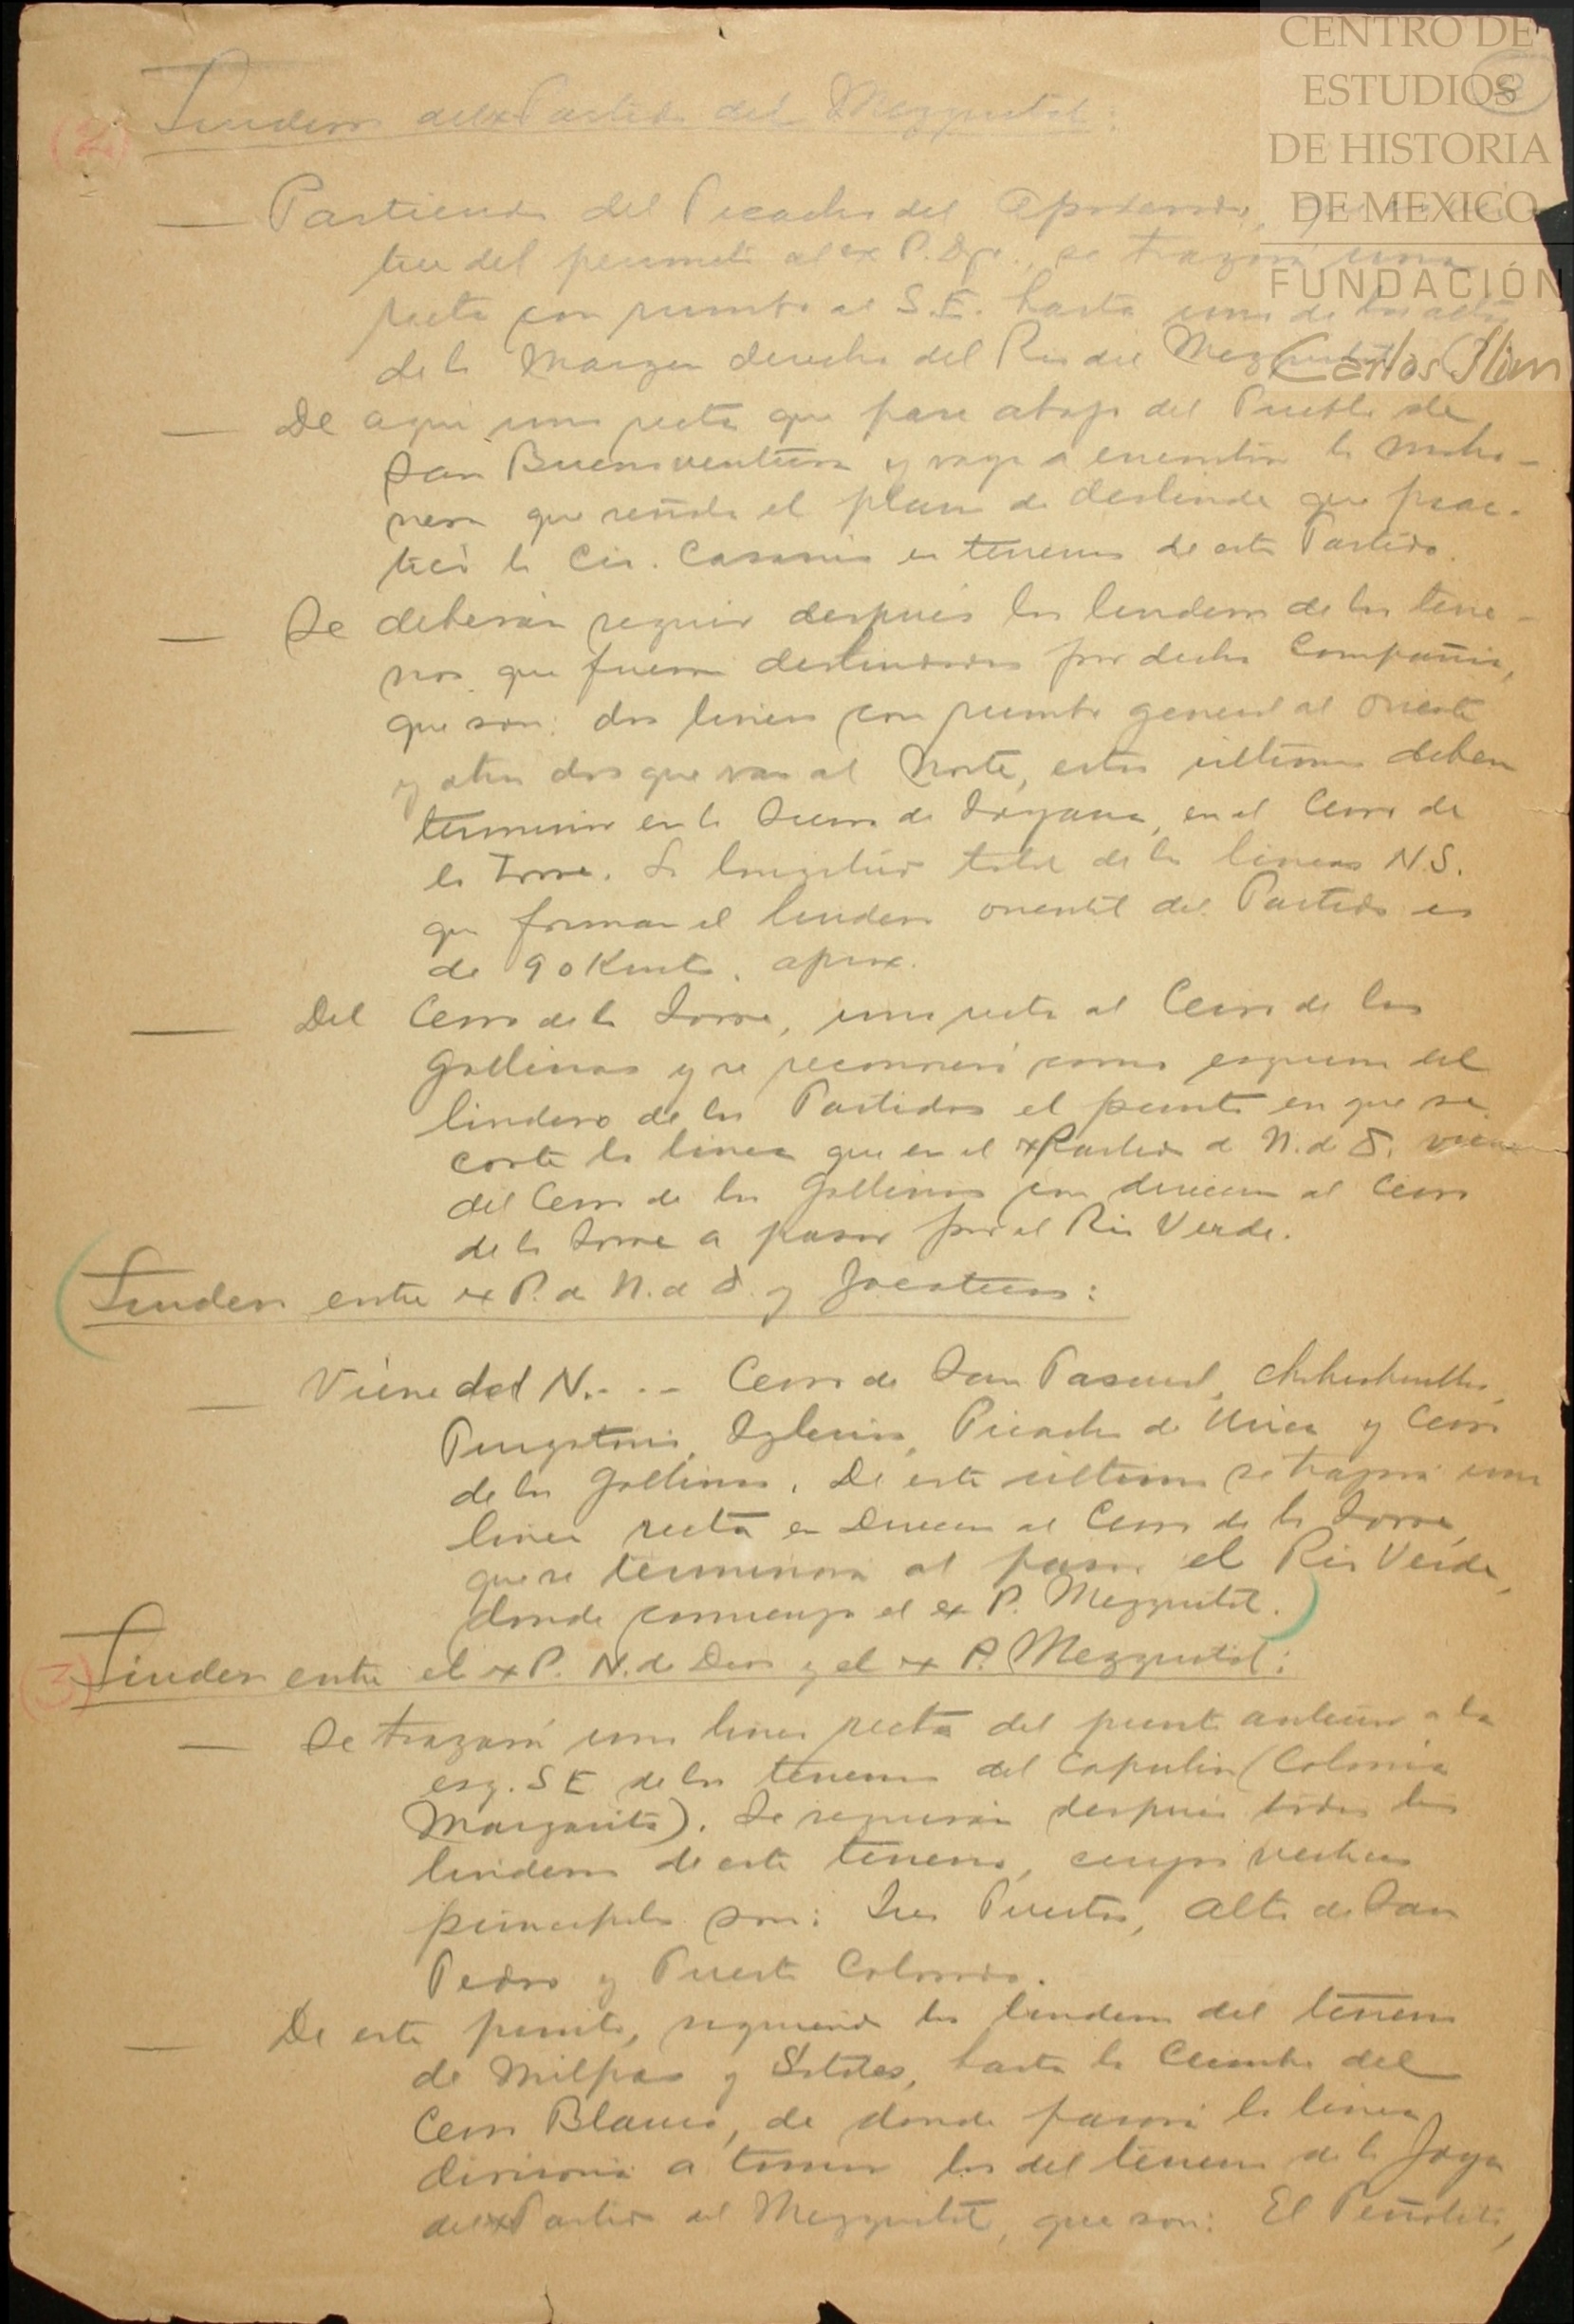 CENTRO DE
ESTUDIOS
DE HISTORIA
DE MEXICO
FUNDACIÓN
Carlos Slim
(2) Lindero del ex Partido del Mezquital:
— Partiendo del Picacho del
del al ex P. Dgo., se trazará una
recta con rumbo al S.E. hasta uno de los altos
de la Margen derecha del Rio del Mezquital
— De aqui una recta que pase abajo del Pueblo de
San Buenaventura y vaya a encontrar la moho-
nera que señala el plano de deslinde que prac-
ticó la Cia. Casasús en terrenos de este Partido.
— Se deberán seguir despues los linderos de los terre-
nos que fueron deslindados por dicha Compañia,
que son: dos lineas con rumbo general al Oriente
y otras dos que van al Norte, estas ultimas deben
terminar en la Sierra de , en el Cerro de
la Torre. La longitud total de las lineas N.S.
que forman el lindero oriental del Partido es
de 90 Kmts. aprox.
— Del Cerro de la Torre, una recta al Cerro de las
Gallinas y se reconocerá como esquina del
lindero de los Partidos el punto en que se
corte la linea que en el ex Partido de N. de D. viene
del Cerro de las Gallinas con direccion al Cerro
de la Torre a pasar por el Rio Verde.
Lindero entre ex P. de N. de D. y Zacatecas:
— Viene del N. - - - Cerro de San Pascual, Chihuihuillo,
Purgatorio, Iglesia, Picacho de Urica y Cerro
de las Gallinas. De este ultimo se trazará una
linea recta en Direccion al Cerro de la Torre,
que se terminará al pasar el Rio Verde,
donde comienza el ex P. Mezquital.
(3) Lindero entre el ex P. N. de Dios y el ex P. Mezquital:
— Se trazará una linea recta del punto anterior a la
esq. SE de los terrenos del Capulin (Colonia
Margarita). Se seguirán despues todos los
linderos de este terreno, cuyos vertices
principales son: Tres Puertos, Alto de San
Pedro y Puerto Colorado.
— De este punto, siguiendo los linderos del terreno
de Milpas y , hasta la Cumbre del
Cerro Blanco, de donde pasará la linea
divisoria a tomar los del terreno de la Joya
del ex Partido del Mezquital, que son: El Peñolito,